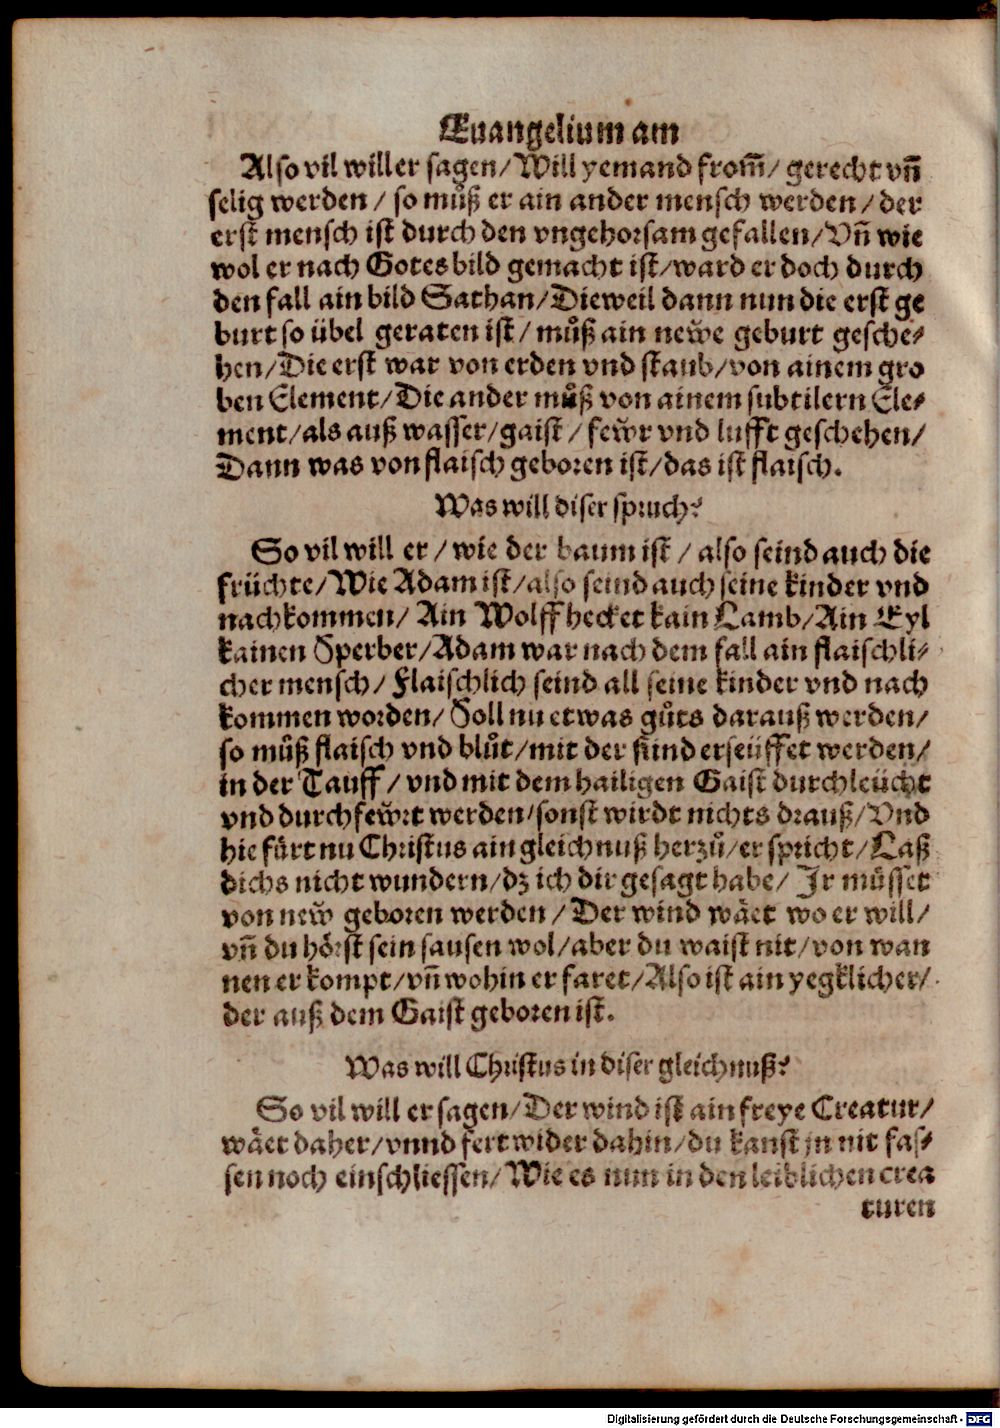 Euangelium am
Also vil will er sagen/Will yemand from̃/ gerecht vñ
selig werden / so můß er ain ander mensch werden / der
erst mensch ist durch den vngehorsam gefallen/Vñ wie
wol er nach Gotes bild gemacht ist/ward er doch durch
den fall ain bild Sathan/Dieweil dann nun die erst ge
burt so übel geraten ist / můß ain newe geburt gesche-
hen/Die erst war von erden vnd staub/von ainem gro
ben Element/Die ander můß von ainem subtilern Ele-
ment/als auß wasser/gaist / fewr vnd lufft geschehen/
Dann was von flaisch geboren ist/das ist flaisch.
Was will diser spruch?
So vil will er / wie der baum ist / also seind auch die
früchte/Wie Adam ist/also seind auch seine kinder vnd
nachkommen/ Ain Wolff hecket kain Lamb/Ain Eyl
kainen Sperber/Adam war nach dem fall ain flaischli-
cher mensch/ Flaischlich seind all seine kinder vnd nach
kommen worden/ Soll nu etwas gůts darauß werden/
so můß flaisch vnd blůt/mit der sünd erseüffet werden/
in der Tauff / vnd mit dem hailigen Gaist durchleücht
vnd durchfewrt werden/sonst wirdt nichts drauß/Vnd
hie fürt nu Christus ain gleichnuß herzů/er spricht/Laß
dichs nicht wundern/dz ich dir gesagt habe/ Jr müsset
von new geboren werden / Der wind wäet wo er will/
vñ du hörst sein sausen wol/aber du waist nit/von wan
nen er kompt/vñ wohin er faret/Also ist ain yegklicher/
der auß dem Gaist geboren ist.
Was will Christus in diser gleichnuß?
So vil will er sagen/Der wind ist ain freye Creatur/
wäet daher/vnnd fert wider dahin/du kanst jn nit fas-
sen noch einschliessen/Wie es nun in den leiblichen crea
turen
Digitalisierung gefördert durch die Deutsche Forschungsgemeinschaft - DFG